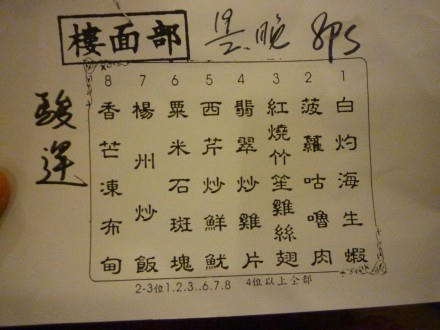 樓面部
晚 8PS
駿
1 白灼海生蝦
2 菠蘿咕嚕肉
3 紅燒竹笙雞絲翅
4 翡翠炒雞片
5 西芹炒鮮魷
6 粟米石斑塊
7 楊州炒飯
8 香芒凍布甸
2-3位1.2.3..6.7.8 4位以上全部